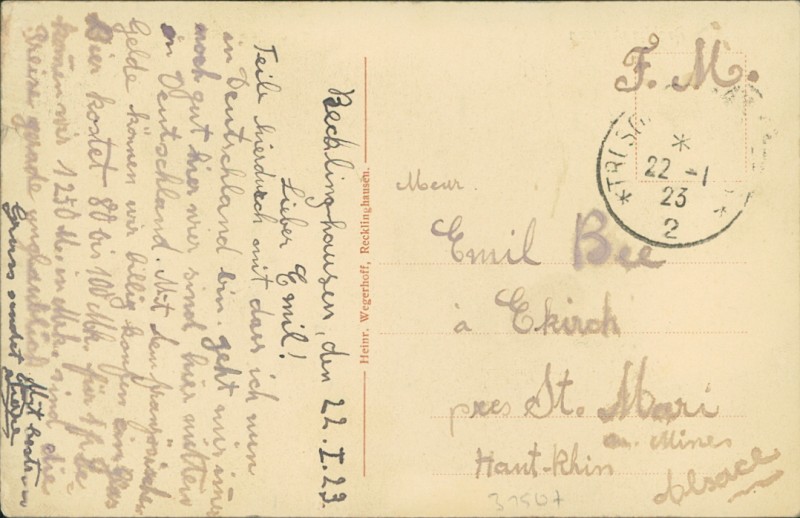 Recklinghausen, den 22.I.23.
Lieber Emil!
Teile hierdurch mit das ich nun
in Deutschland bin. geht mir immer
noch gut hier wir sind hier mitten
in Deutschland. Mit dem französischen
Gelde können wir billig kaufen ein Glas
Bier kostet 80 bis 100 Mk. für 1 fr. be-
kommen wir 1250 M. in Mk. sind die
Preise gerade unglaublich
Gruss sendet
F. M.
TRÉSOR
22 -1
23
2
Heinr. Wegerhoff, Recklinghausen.
Monr.
Emil Bee
à Ekirch
pres St. Mari
au. Mines
Haut-Rhin
Alsace